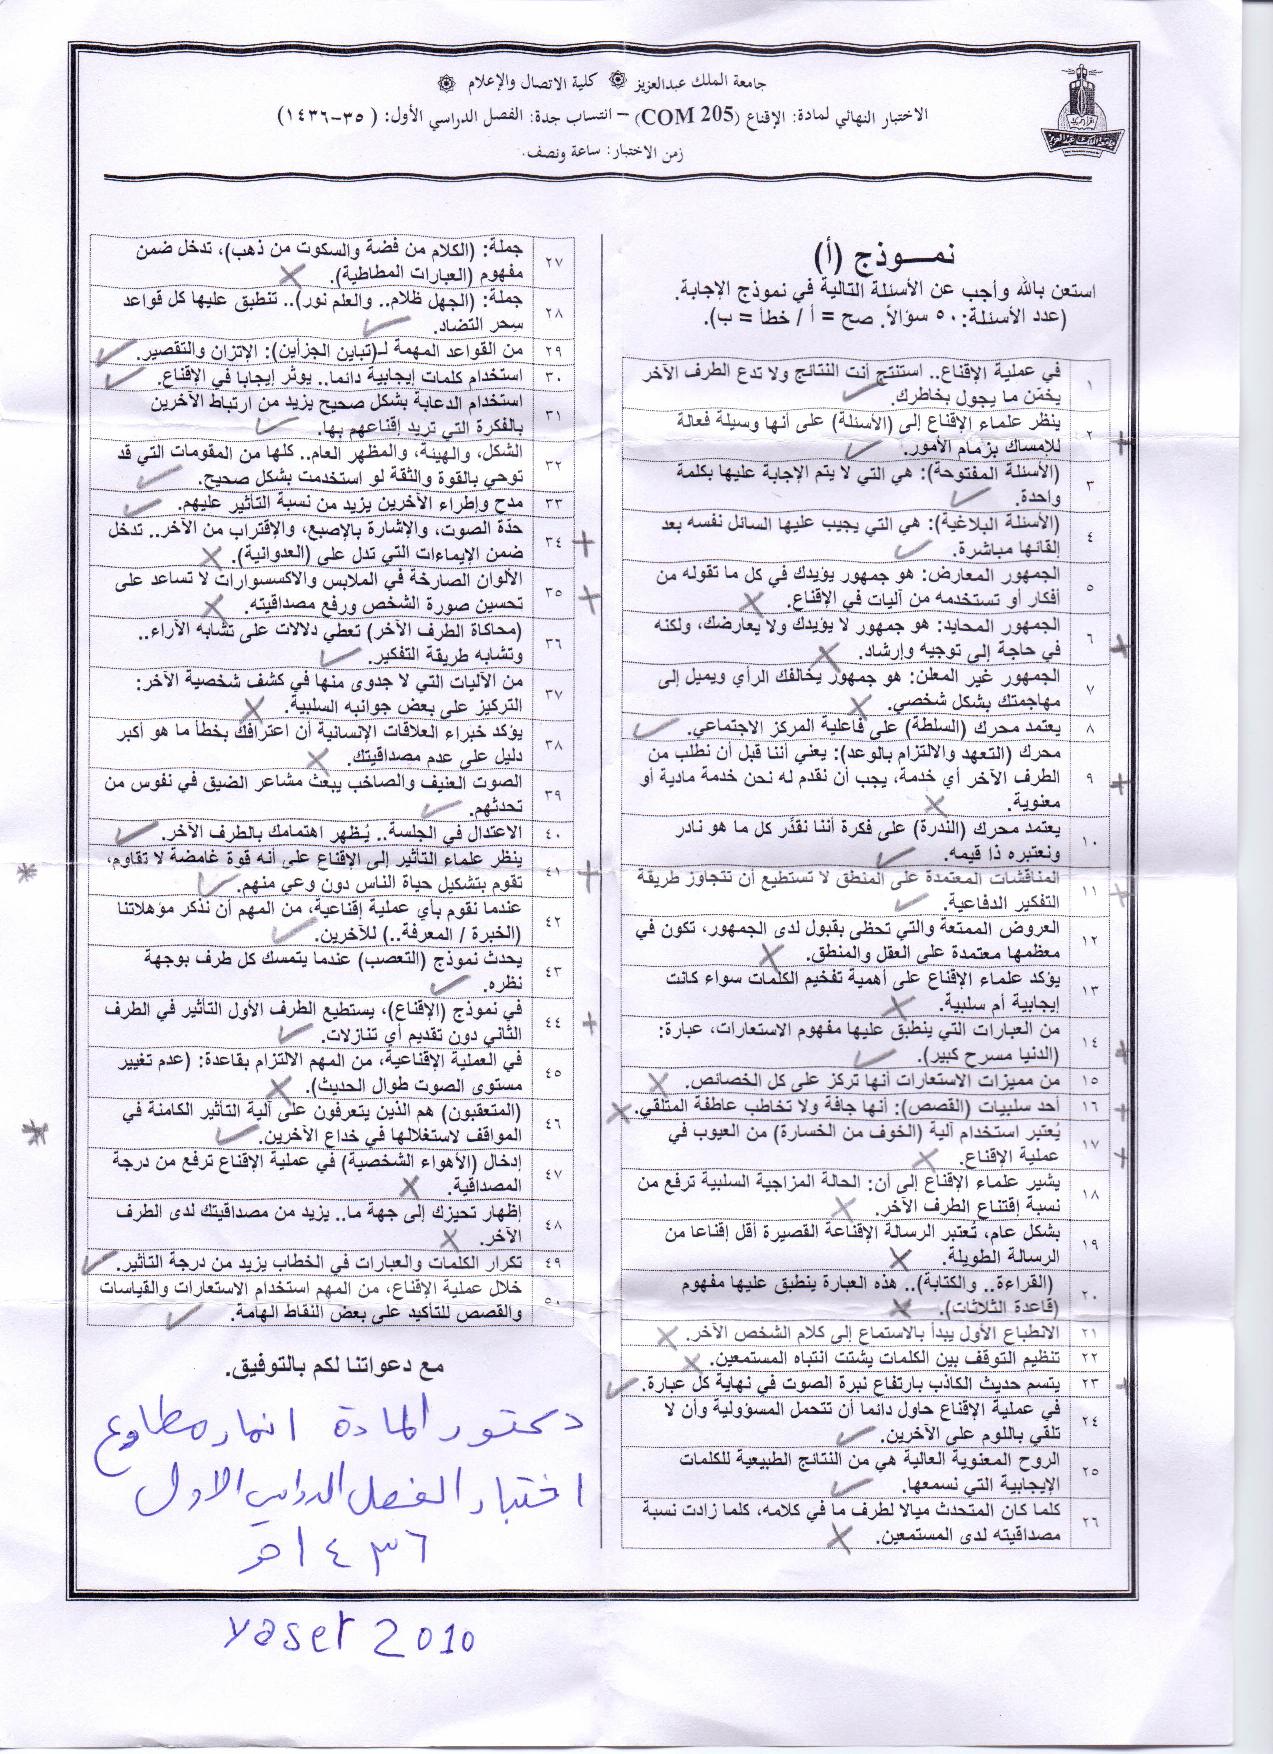 جامعة الملك عبدالعزيز ۞ كلية الاتصال والإعلام ۞
الاختبار النهائي لمادة: الإقناع (COM 205) – انتساب جدة: الفصل الدراسي الأول: ( ٣٥-١٤٣٦)
زمن الاختبار: ساعة ونصف.
نمـــوذج (أ)
استعن بالله وأجب عن الأسئلة التالية في نموذج الإجابة.
(عدد الأسئلة: ٥٠ سؤالاً. صح = أ / خطأ = ب).
١ في عملية الإقناع.. استنتج أنت النتائج ولا تدع الطرف الآخر
يخمّن ما يجول بخاطرك. ✓
٢ ينظر علماء الإقناع إلى (الأسئلة) على أنها وسيلة فعالة
للإمساك بزمام الأمور. ✓ +
٣ (الأسئلة المفتوحة): هي التي لا يتم الإجابة عليها بكلمة
واحدة. ✓
٤ (الأسئلة البلاغية): هي التي يجيب عليها السائل نفسه بعد
إلقائها مباشرة. ✓
٥ الجمهور المعارض: هو جمهور يؤيدك في كل ما تقوله من
أفكار أو تستخدمه من آليات في الإقناع. ×
٦ الجمهور المحايد: هو جمهور لا يؤيدك ولا يعارضك، ولكنه
في حاجة إلى توجيه وإرشاد. × +
٧ الجمهور غير المعلن: هو جمهور يخالفك الرأي ويميل إلى
مهاجمتك بشكل شخصي. ×
٨ يعتمد محرك (السلطة) على فاعلية المركز الاجتماعي. ✓
٩ محرك (التعهد والالتزام بالوعد): يعني أننا قبل أن نطلب من
الطرف الآخر أي خدمة، يجب أن نقدم له نحن خدمة مادية أو
معنوية. × +
١٠ يعتمد محرك (الندرة) على فكرة أننا نقدَّر كل ما هو نادر
ونعتبره ذا قيمه. ✓
١١ المناقشات المعتمدة على المنطق لا تستطيع أن تتجاوز طريقة
التفكير الدفاعية. ✓ +
١٢ العروض الممتعة والتي تحظى بقبول لدى الجمهور، تكون في
معظمها معتمدة على العقل والمنطق. ×
١٣ يؤكد علماء الإقناع على أهمية تفخيم الكلمات سواء كانت
إيجابية أم سلبية. ×
١٤ من العبارات التي ينطبق عليها مفهوم الاستعارات، عبارة:
(الدنيا مسرح كبير). ✓ +
١٥ من مميزات الاستعارات أنها تركز على كل الخصائص. ×
١٦ أحد سلبيات (القصص): أنها جافة ولا تخاطب عاطفة المتلقي. × +
١٧ يُعتبر استخدام آلية (الخوف من الخسارة) من العيوب في
عملية الإقناع. × +
١٨ يشير علماء الإقناع إلى أن: الحالة المزاجية السلبية ترفع من
نسبة إقتناع الطرف الآخر. ×
١٩ بشكل عام، تُعتبر الرسالة الإقناعة القصيرة أقل إقناعا من
الرسالة الطويلة. ×
٢٠ (القراءة.. والكتابة).. هذه العبارة ينطبق عليها مفهوم
(قاعدة الثلاثات). ×
٢١ الانطباع الأول يبدأ بالاستماع إلى كلام الشخص الآخر. ×
٢٢ تنظيم التوقف بين الكلمات يشتت انتباه المستمعين. ×
٢٣ يتسم حديث الكاذب بارتفاع نبرة الصوت في نهاية كل عبارة. ✓ +
٢٤ في عملية الإقناع حاول دائما أن تتحمل المسؤولية وأن لا
تلقي باللوم على الآخرين. ✓
٢٥ الروح المعنوية العالية هي من النتائج الطبيعية للكلمات
الإيجابية التي نسمعها. ✓
٢٦ كلما كان المتحدث ميالا لطرف ما في كلامه، كلما زادت نسبة
مصداقيته لدى المستمعين. ×
٢٧ جملة: (الكلام من فضة والسكوت من ذهب)، تدخل ضمن
مفهوم (العبارات المطاطية). ×
٢٨ جملة: (الجهل ظلام.. والعلم نور).. تنطبق عليها كل قواعد
سحر التضاد. ✓
٢٩ من القواعد المهمة لـ(تباين الجزأين): الإتزان والتقصير. ✓
٣٠ استخدام كلمات إيجابية دائما.. يوثر إيجابا في الإقناع. ✓
٣١ استخدام الدعابة بشكل صحيح يزيد من ارتباط الآخرين
بالفكرة التي تريد إقناعهم بها. ✓
٣٢ الشكل، والهيئة، والمظهر العام.. كلها من المقومات التي قد
توحي بالقوة والثقة لو استخدمت بشكل صحيح. ✓
٣٣ مدح وإطراء الآخرين يزيد من نسبة التأثير عليهم. ✓
٣٤ حدّة الصوت، والإشارة بالإصبع، والإقتراب من الآخر.. تدخل
ضمن الإيماءات التي تدل على (العدوانية). × +
٣٥ الألوان الصارخة في الملابس والاكسسوارات لا تساعد على
تحسين صورة الشخص ورفع مصداقيته. × +
٣٦ (محاكاة الطرف الآخر) تعطي دلالات على تشابه الآراء..
وتشابه طريقة التفكير. ✓
٣٧ من الآليات التي لا جدوى منها في كشف شخصية الآخر:
التركيز على بعض جوانبه السلبية. ×
٣٨ يؤكد خبراء العلاقات الإنسانية أن اعترافك بخطأ ما هو أكبر
دليل على عدم مصداقيتك. ×
٣٩ الصوت العنيف والصاخب يبعث مشاعر الضيق في نفوس من
تحدثهم. ✓
٤٠ الاعتدال في الجلسة.. يُظهر اهتمامك بالطرف الآخر. ✓
٤١ ينظر علماء التأثير إلى الإقناع على أنه قوة غامضة لا تقاوم،
تقوم بتشكيل حياة الناس دون وعي منهم. ✓ +
٤٢ عندما نقوم بأي عملية إقناعية، من المهم أن نذكر مؤهلاتنا
(الخبرة / المعرفة..) للآخرين. ✓
٤٣ يحدث نموذج (التعصب) عندما يتمسك كل طرف بوجهة
نظره. ✓
٤٤ في نموذج (الإقناع)، يستطيع الطرف الأول التأثير في الطرف
الثاني دون تقديم أي تنازلات. ✓ +
٤٥ في العملية الإقناعية، من المهم الالتزام بقاعدة: (عدم تغيير
مستوى الصوت طوال الحديث). ×
٤٦ (المتعقبون) هم الذين يتعرفون على آلية التأثير الكامنة في
المواقف لاستغلالها في خداع الآخرين. ✓
٤٧ إدخال (الأهواء الشخصية) في عملية الإقناع ترفع من درجة
المصداقية. ×
٤٨ إظهار تحيزك إلى جهة ما.. يزيد من مصداقيتك لدى الطرف
الآخر. ×
٤٩ تكرار الكلمات والعبارات في الخطاب يزيد من درجة التأثير. ✓
٥٠ خلال عملية الإقناع، من المهم استخدام الاستعارات والقياسات
والقصص للتأكيد على بعض النقاط الهامة. ✓
مع دعواتنا لكم بالتوفيق.
دكتور المادة انمار مطاوع
اختبار الفصل الدراسي الاول
١٤٣٦هـ
yaser 2010